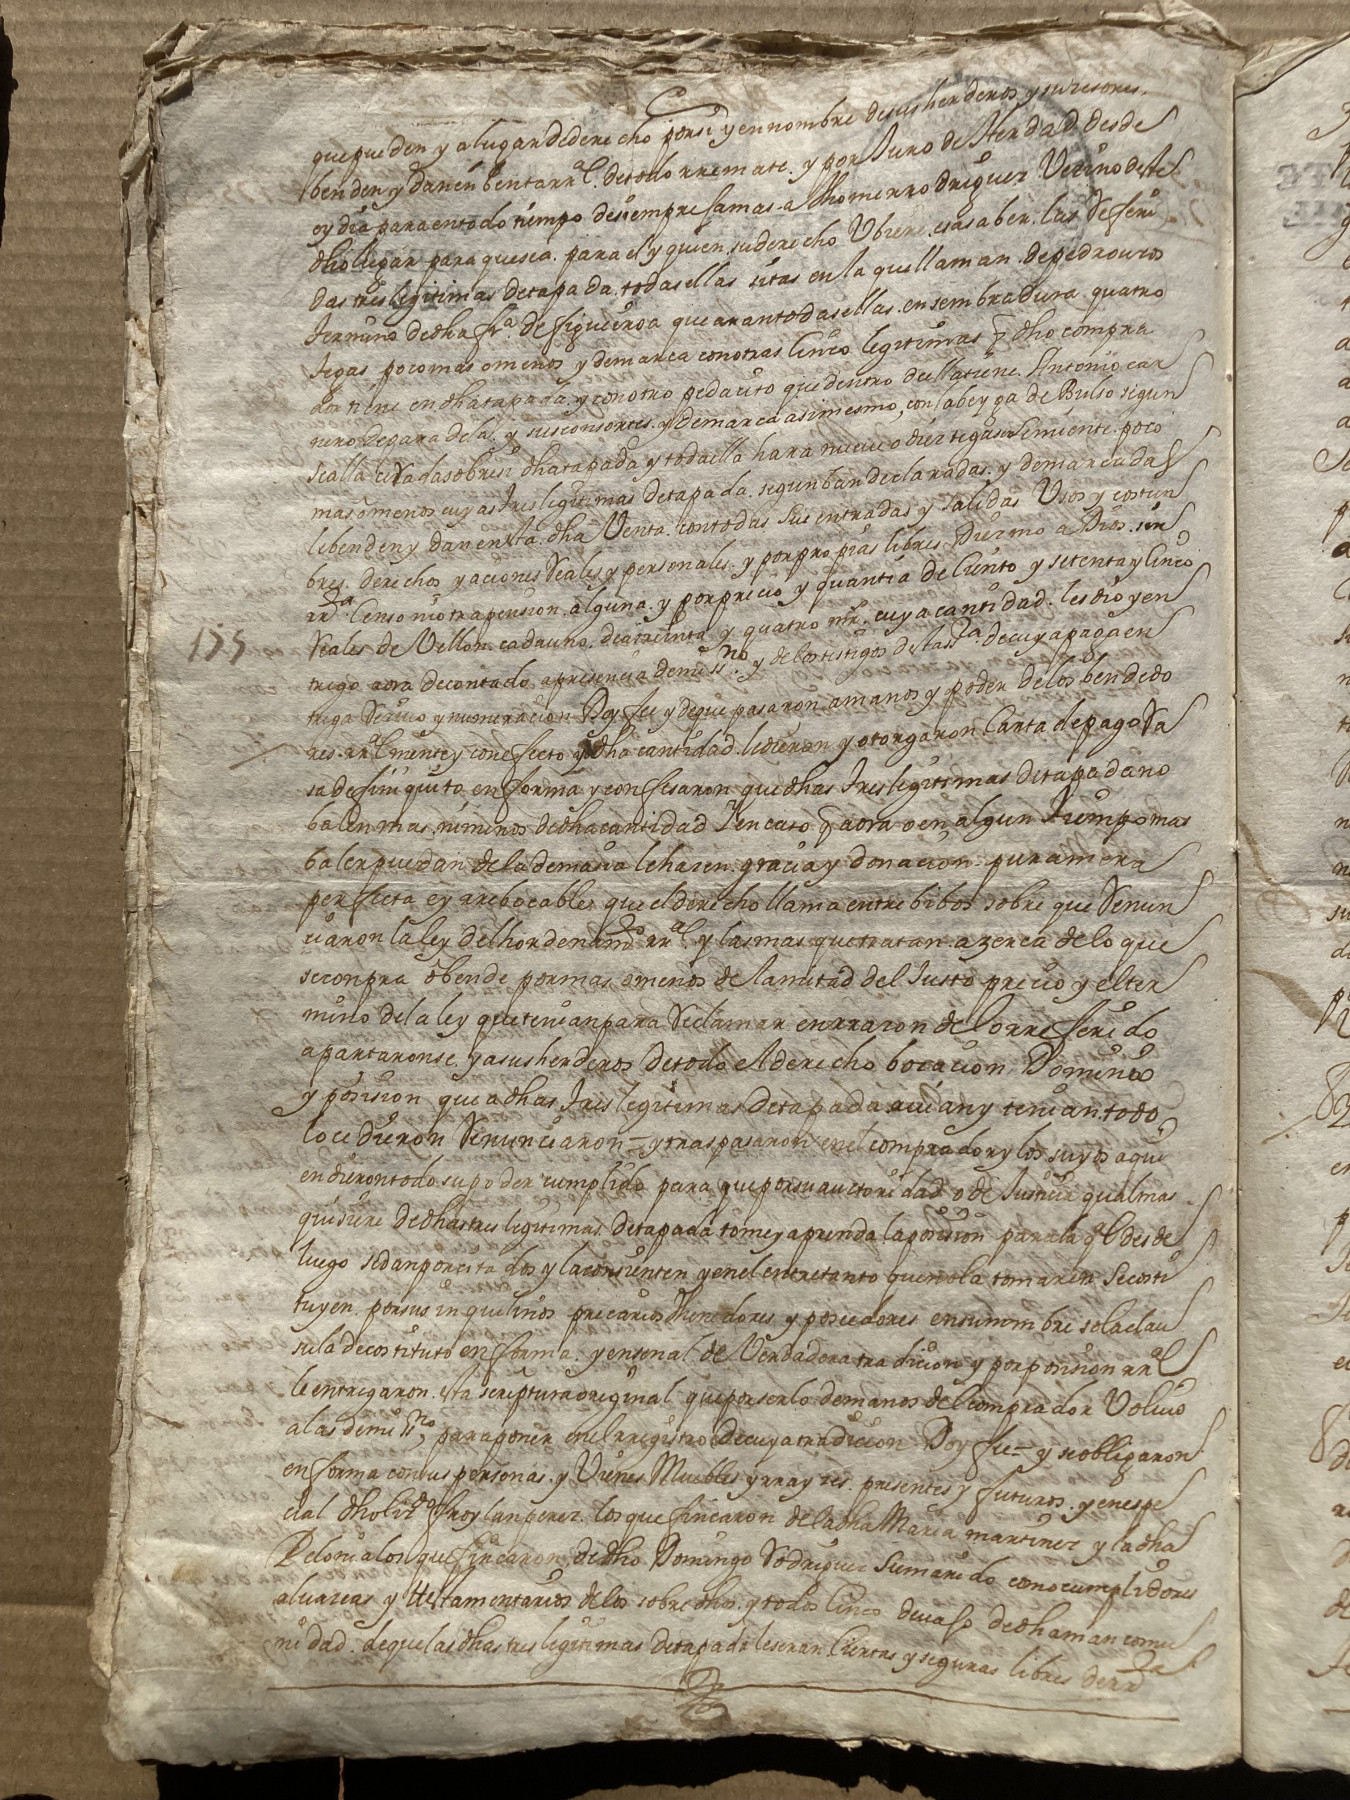 que pueden y a lugar de derecho por si y en nombre de sus herderos y suzesores.
benden y dan en benta rrl. de todo rremate. y por Juro de Herdad. desde
oy dia para en todo tiempo de siempre Jamas. a dho merro driguez Vezino deste
dho lugar para que sea. para el y quien. su derecho Ubiere. es a saber. las Referi
das tres legitimas de tapada. todas ellas sitas en la que llaman. de pedrouzos
termino de dha fra. de figueroa que aran todas ellas. en sembradura quatro
tegas poco mas o menos y demarca con otras Cinco legitimas q dho compra
dor tiene en dha tapada. y con otro pedacito que dentro de ella tiene. Antonio car
nero de gandela. y sus consortes. y demarca asimesmo, con la beyga de Bulso segun
se alla zerrada sobre si dha tapada y toda ella hara nuebe o diez tegas de Simiente. poco
mas o menos cuyas tres legitimas de tapada. segun ban declaradas. y demarcadas
le benden y dan en esta. dha Venta. con todas sus entradas y salidas Usos y costun
bres. derechos y aciones Reales y personales. y por propias libres Diezmo a Dios. sin
rta. Censo ni otra pension. alguna. y por precio y quantia de Ciento y setenta y Cinco
175
Reales de Vellon. cada uno. de a treinta y quatro mrs. cuya cantidad. les dio y en
trego aora de contado. a presencia de mi ssno. y de los testigos desta ssra. de cuya paga en
trega Reciuo y numeracion Doy fee y de que pasaron a manos y poder de los bendedo
res. rrlmente y con efecto y dha cantidad. le dieron y otorgaron Carta de pago Ra
sa de finiquito en forma y confesaron que dhas tres legitimas de tapada no
balen mas, ni menos de dha cantidad Y en caso q aora o en algun tiempo mas
baler puedan de la demasia le hazen. gracia y donacion. pura mera
perfecta e yrrebocable, que el derecho llama entre bibos sobre que Renun
ciaron la ley del hordenamto rrl. y las mas que tratan. azerca de lo que
se conpra o bende por mas, o menos de la mitad del Justo precio y el ter
mino de la ley que tenian para Reclamar en rrazon de lo rreferido
apartaronse. y a sus herderos de todo el derecho bocacion, Dominio
y posision que a dhas tres legitimas de tapada auian y tenian todo
lo cedieron Renunciaron = y traspasaron en el comprador y los suyos a que
en dieron todo su poder cumplido para que por su auctoridad o de Justicia qual mas
quisiere de dhas tres legitimas. de tapada tome y aprenda la posision para la ql desde
luego se dan por citados y la consienten y en el entretanto que no la tomaren Se costi
tuyen. por sus inquelinos precarios thenedores y poseedores en su nombre so la clau
sula de costituto en forma. y en senal de Verdadera tradicion y por posision rrl
le entregaron. esta scriptura original que por serlo de manos del comprador Voluio
a las de mi ssno, para poner en el rregistro de cuya tradicion Doy fee = y se obligaron
en forma con sus personas. y Vienes Muebles y rrayzes. presentes y futuros. y en espe
cial dho lizdo froylan perez. los que fincaron de la dha Maria martinez y la dha
Pelonia los que fincaron de dho Domingo Rodriguez Su marido como cumplidores
aluazeas y testamentarios de los sobre dhos. y todos Cinco devajo de dha mancomu
nidad. de que las dhas tres legitimas de tapada le seran Ciertas y seguras libres de rrta